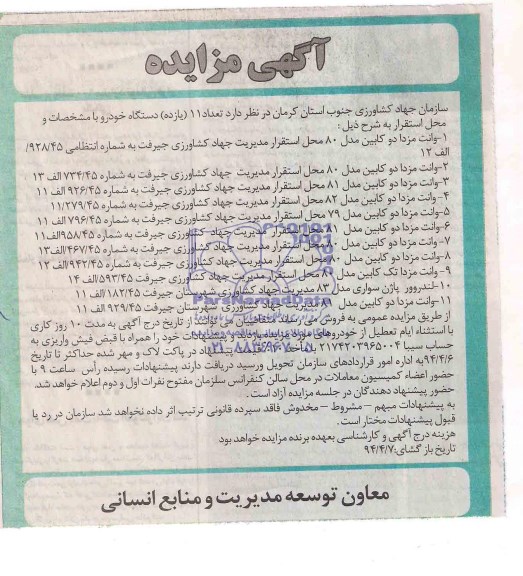 آگهی مزایده
سازمان جهاد کشاورزی جنوب استان کرمان در نظر دارد تعداد ۱۱ (یازده) دستگاه خودرو با مشخصات و
محل استقرار به شرح ذیل :
۱-وانت مزدا دو کابین مدل ۸۰ محل استقرار مدیریت جهاد کشاورزی جیرفت به شماره انتظامی ۹۲۸/۴۵/
الف ۱۲
۲-وانت مزدا دو کابین مدل ۸۰ محل استقرار مدیریت جهاد کشاورزی جیرفت به شماره ۷۳۴/۴۵ الف ۱۳
۳-وانت مزدا دو کابین مدل ۸۱ محل استقرار مدیریت جهاد کشاورزی جیرفت به شماره ۹۲۶/۴۵ الف ۱۱
۴-وانت مزدا دو کابین مدل ۸۲ محل استقرار مدیریت جهاد کشاورزی جیرفت به شماره ۱۱/۲۷۹/۴۵
۵-وانت مزدا دو کابین مدل ۷۹ محل استقرار مدیریت جهاد کشاورزی جیرفت به شماره ۷۹۶/۴۵ الف ۱۱
۶-وانت مزدا دو کابین مدل ۸۱ محل استقرار مدیریت جهاد کشاورزی جیرفت به شماره ۹۵۸/۴۵الف ۱۱
۷-وانت مزدا دو کابین مدل ۸۰ محل استقرار مدیریت جهاد کشاورزی جیرفت به شماره ۴۶۷/۴۵/الف۱۳
۸-وانت مزدا دو کابین مدل ۸۰ محل استقرار مدیریت جهاد کشاورزی جیرفت به شماره ۹۴۲/۴۵/الف ۱۲
۹- وانت مزدا تک کابین مدل ۸۹ محل استقرار مدیریت جهاد کشاورزی جیرفت ۵۹۳/۴۵/الف ۱۴
۱۰-لندروور پاژن سواری مدل ۸۳ مدیریت جهاد کشاورزی شهرستان جیرفت ۱۸۲/۴۵/الف ۱۱
۱۱-وانت مزدا دو کابین مدل ۸۱ مدیریت جهاد کشاورزی شهرستان جیرفت ۹۲۹/۴۵ الف ۱۱
از طریق مزایده عمومی به فروش می رساند متقاضیان می توانند از تاریخ درج آگهی به مدت ۱۰ روز کاری
با استثناء ایام تعطیل از خودروهای مورد مزایده بازدید و پیشنهادات خود را همراه با قبض فیش واریزی به
حساب سیبا ۲۱۷۴۲۰۳۹۶۵۰۰۴ در پاکت لاک و مهر شده حداکثر تا تاریخ
۹۴/۴/۶به اداره امور قراردادهای سازمان تحویل ورسید دریافت دارند پیشنهادات رسیده رأس ساعت ۹ با
حضور اعضاء کمیسیون معاملات در محل سالن کنفرانس سازمان مفتوح نفرات اول و دوم اعلام خواهد شد.
حضور پیشنهاد دهندگان در جلسه مزایده آزاد است.
به پیشنهادات مبهم – مشروط – مخدوش فاقد سپرده قانونی ترتیب اثر داده نخواهد شد سازمان در رد یا
قبول پیشنهادات مختار است.
هزینه درج آگهی و کارشناسی بعهده برنده مزایده خواهد بود
تاریخ باز گشای:۹۴/۴/۷
معاون توسعه مدیریت و منابع انسانی
ParsNamadData